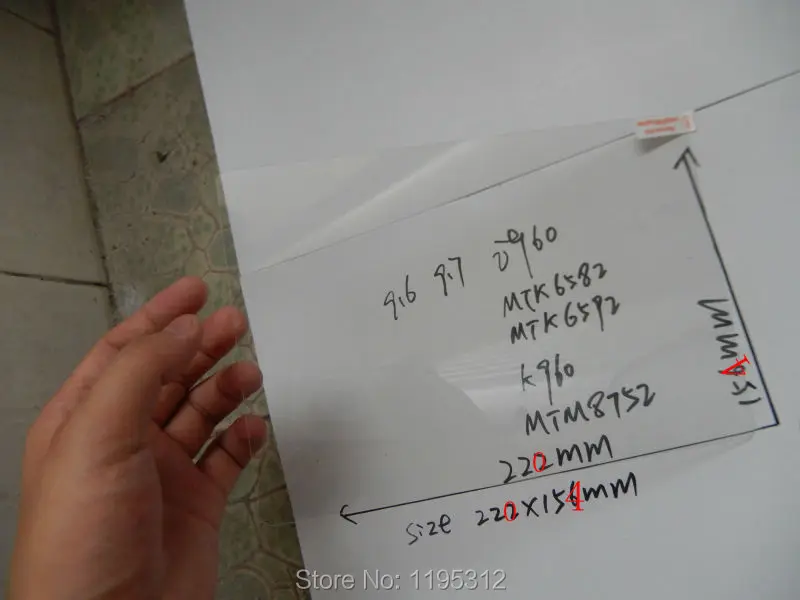 9.6 9.7 v960
MTK6582
MTK6592
K960
MTM8752
220mm
size 220X154mm
154mm
Store No: 1195312